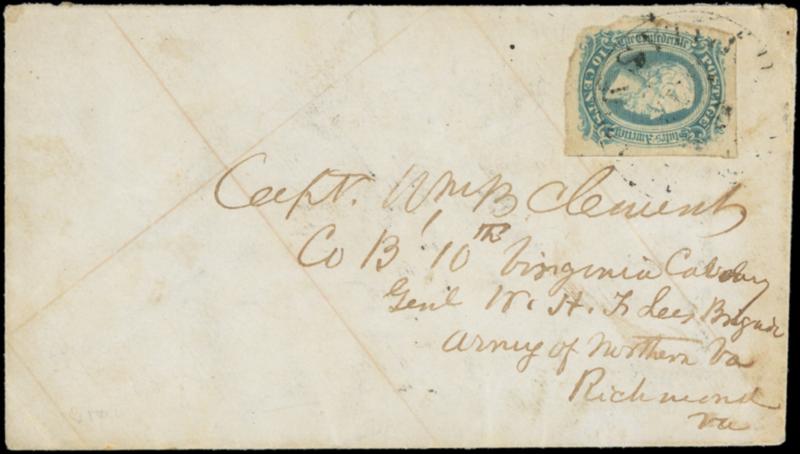 The Confederate
States America
POSTAGE
TEN CENTS
Capt. Wm B. Clement
Co B' 10th Virginia Cavalry
Genl W. H. F Lees Brigade
Army of Northern Va
Richmond
Va